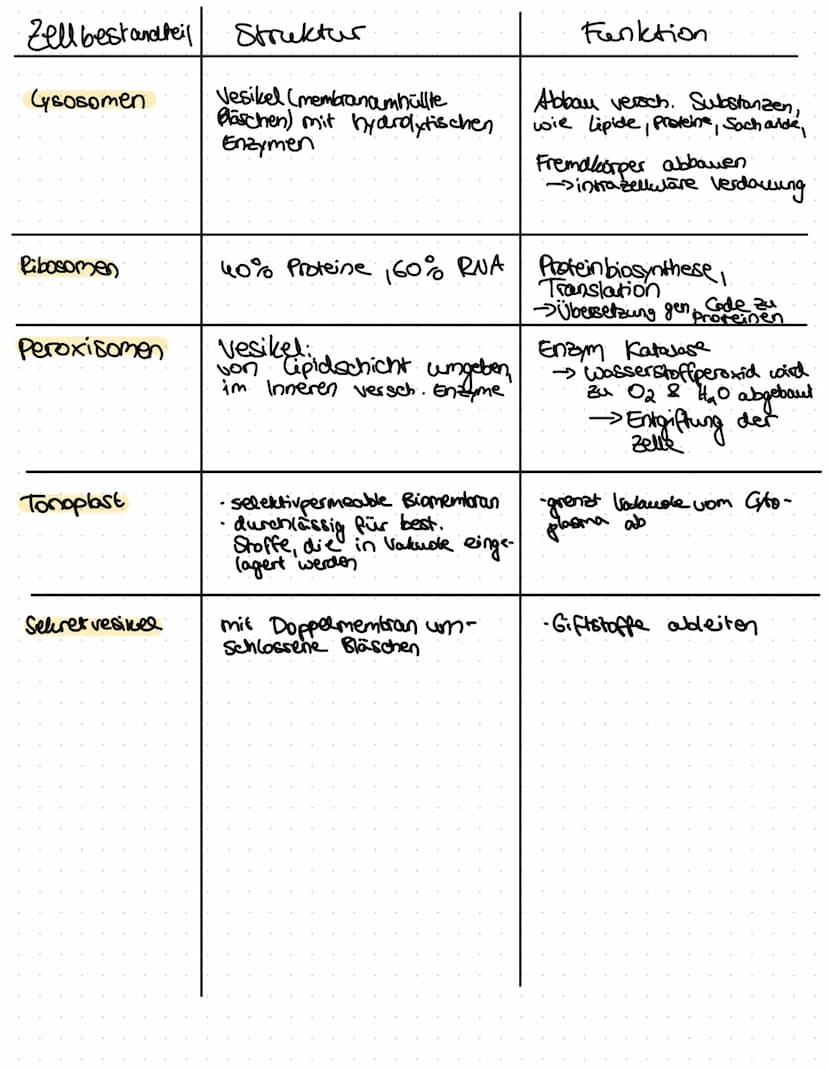 Zellbestandteil
Struktur
Funktion
Lysosomen
Vesikel (membranamhüllte
Bläschen) mit hydrolytischen
Enzymen
Abbau versch. Substanzen,
wie Lipide, Proteine, Sacharide,
Fremdkörper abbauen
→ intrazelluläre Verdauung
Ribosomen
40% Proteine, 60% RNA
Proteinbiosynthese,
Translation
→ Übersetzung gen. Code zu
proteinen
Peroxisomen
Vesikel:
von Lipidschicht umgeben,
im Inneren versch. Enzyme
Enzym Katalase
→ Wasserstoffperoxid wird
zu O₂ & H₂O abgebaut
→ Entgiftung der
Zelle
Tonoplast
· selektivpermeable Biomembran
· durchlässig für best.
Stoffe, die in Vakuole einge-
lagert werden
-grenzt Vakuole vom Cyto-
plasma ab
Sekretvesikel
mit Doppelmembran um-
schlossene Bläschen
· Giftstoffe ableiten